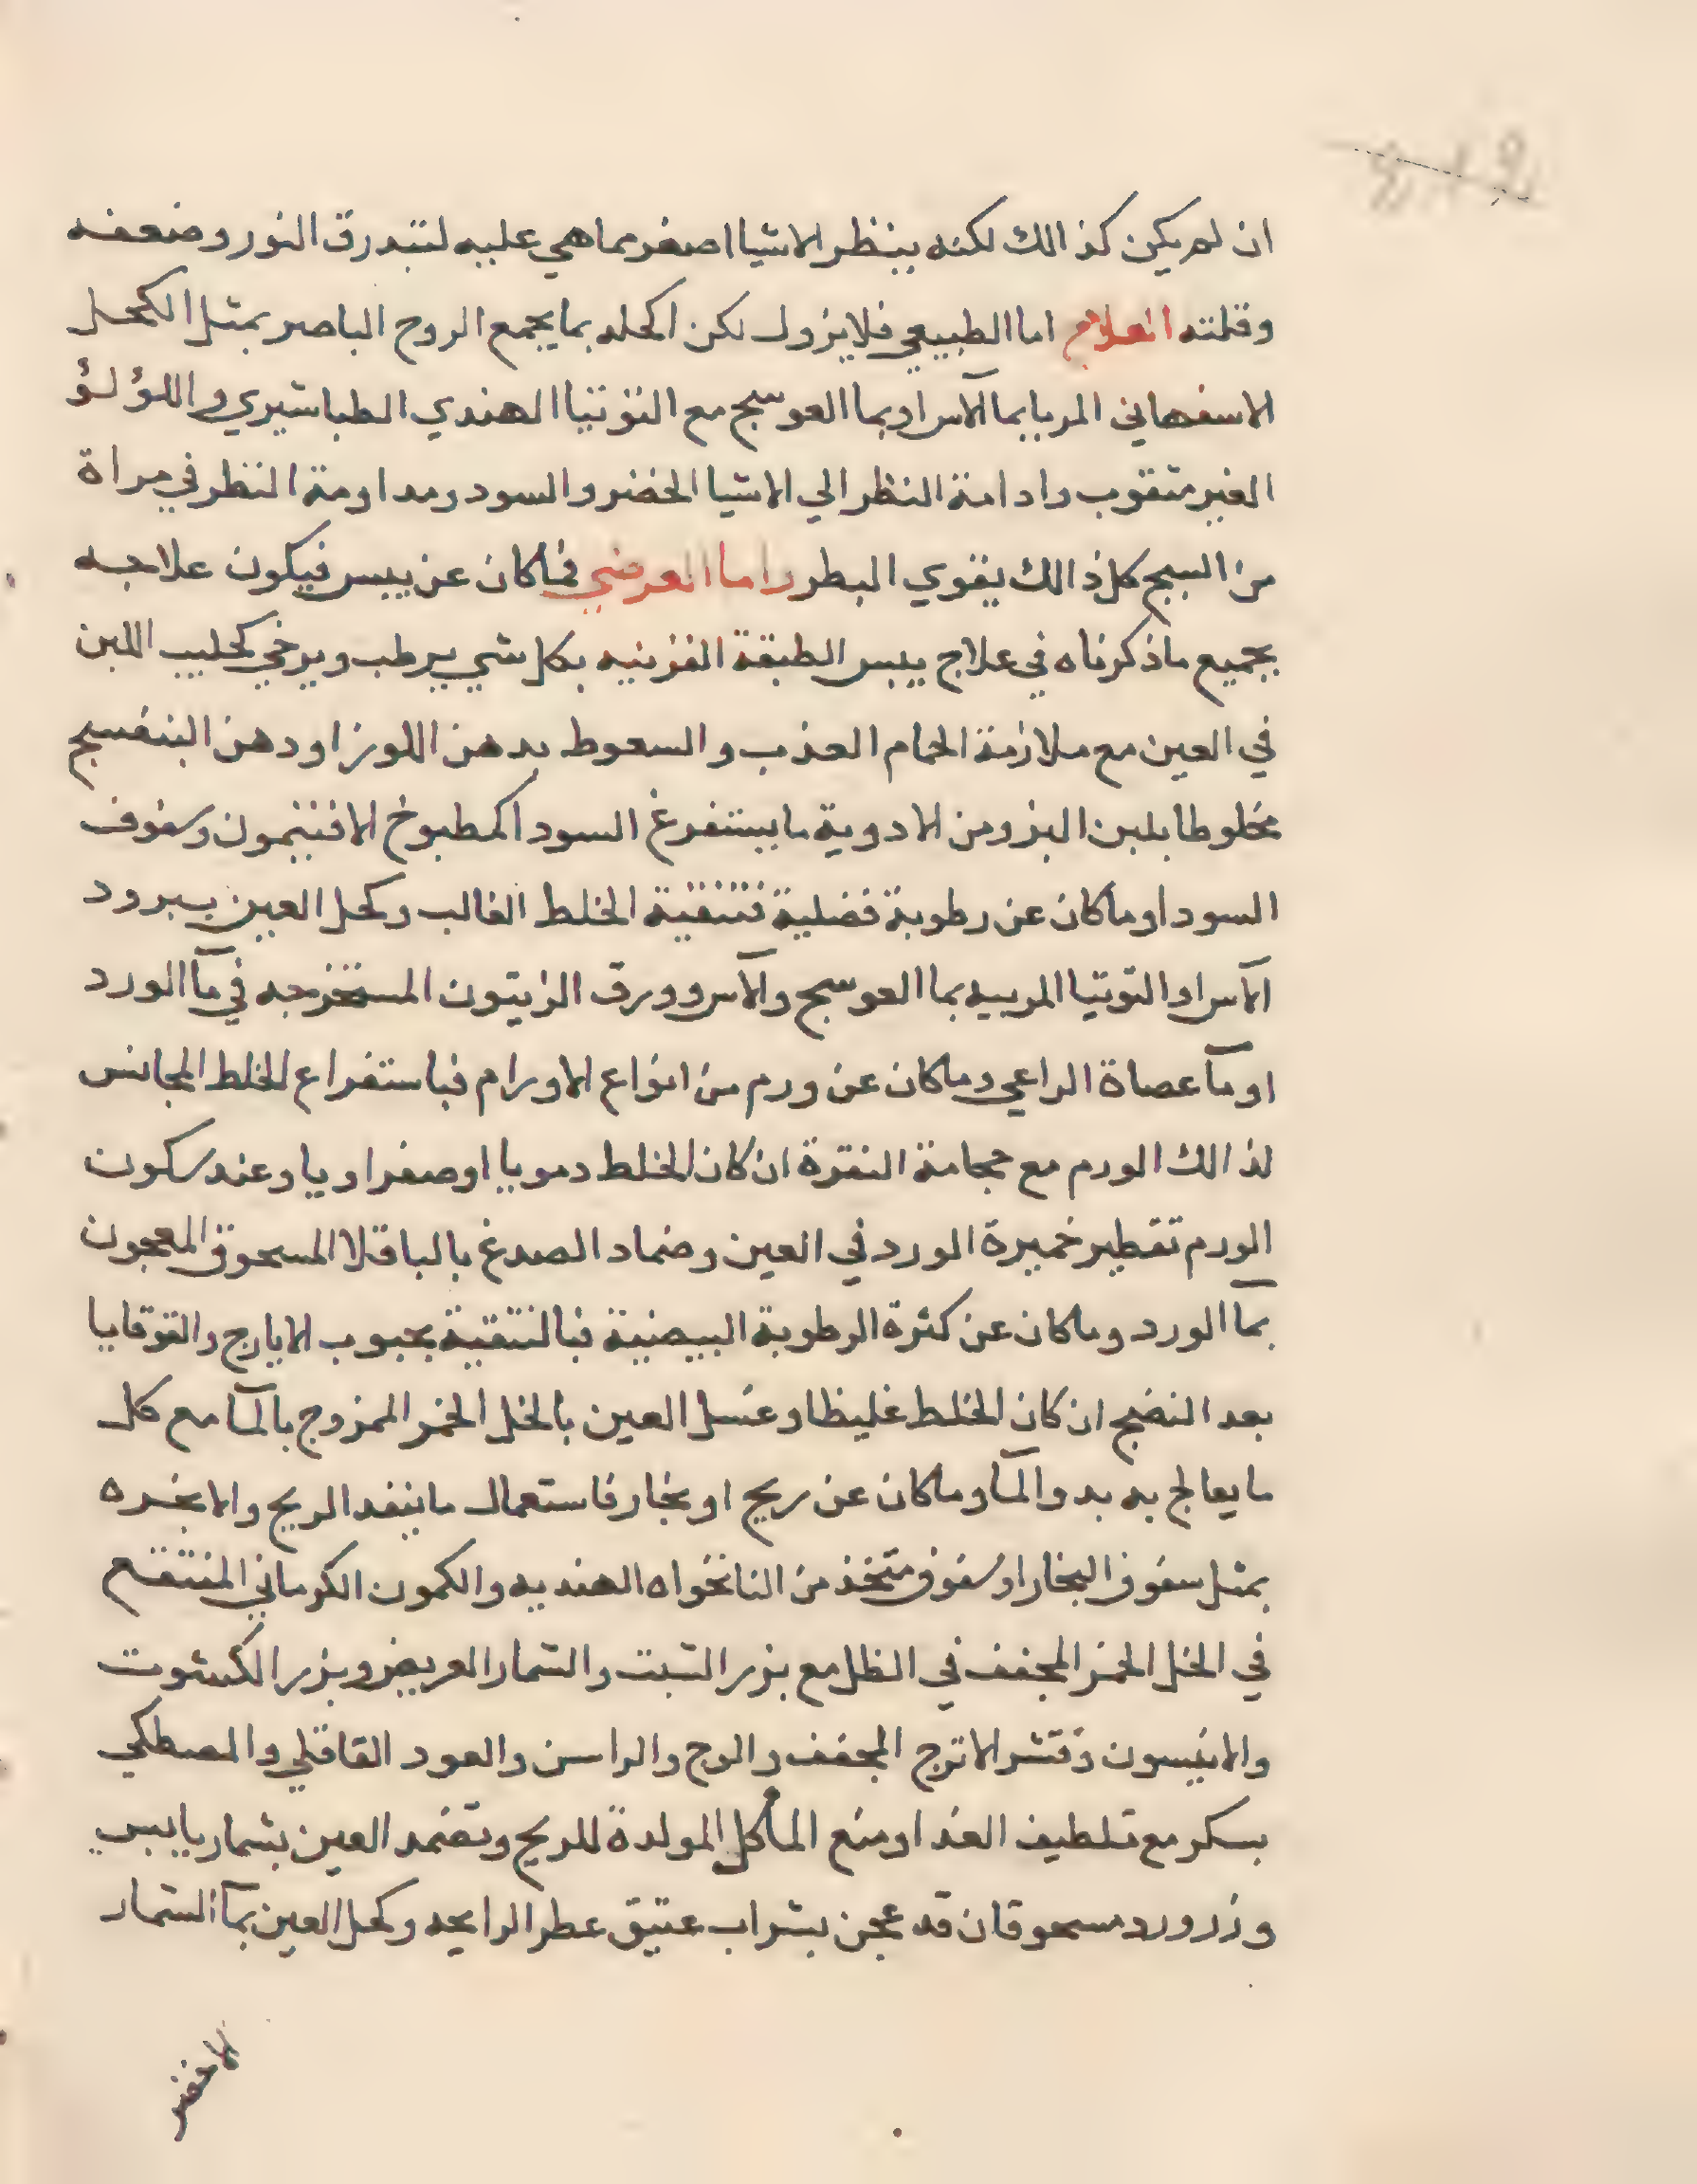 ان لم يكن كذالك لكنه ينظر الاشيا اصغر مما هي عليه لتبدرق النور وضعفه
وقلته العلاج اما الطبيعي فلا يزول لكن اكحله بما يجمع الروح الباصر بمثل الكحل
الاسفهاني المربا بما الآس او بما العوسج مع التوتيا الهندي الطباشيري واللؤلؤ
الغير مثقوب وادامة النظر الي الاشيا الخضر والسود ومداومة النظر في مراة
من السبج كل ذالك يقوي البطر واما العرضي فما كان عن يبس فيكون علاجه
بجميع ما ذكرناه في علاج يبس الطبقة القزنيه بكل شي يرطب ويرخي كحليب اللبن
في العين مع ملازمة الحمام العذب والسعوط بدهن اللوز او دهن البنفسج
مخلوطا بلبن البز ومن الادوية ما يستفرغ السودا كمطبوخ الافتيمون وسفوف
السودا وما كان عن رطوبة فضلية فتنقية الخلط الغالب وكحل العين ببرود
الآس او التوتيا المربيه بما العوسج والآس وورق الزيتون المستخرجه في مآ الورد
او مآ عصاة الراعي وما كان عن ورم من انواع الاورام فباستفراغ الخلط المجانس
لذالك الورم مع حجامة النقرة ان كان الخلط دمويا او صفراويا وعند سكون
الورم تقطير خميرة الورد في العين وضماد الصدغ بالباقلا المسحوق المعجون
بمآ الورد وما كان عن كثرة الرطوبة البيضية فبالتنقية بحبوب الايارج والقوقايا
بعد النضج ان كان الخلط غليظا وغسل العين بالخل الخمر الممزوج بالمآ مع كل
ما يعالج به بدو المآ وما كان عن ريح او بخار فاستعمال ما ينفد الريح والابخره
بمثل سفوف البخار او سفوف متخذ من النانخواه الهنديه والكمون الكرماني المنتقع
في الخل الخمر المجفف في الظل مع بزر الشبت والشمار العريض وبزر الكشوت
والانيسون وقشر الاترج المجفف والوج والراسن والعود القاقلي والمصطكي
بسكر مع تلطيف الغدا ومنع المأكل المولدة للريح وتضمد العين بشمار يابس
وزرورد مسحوقان قد عجن بشراب عتيق عطر الرايحه وكحل العين بمآ الشمار
الاخضر